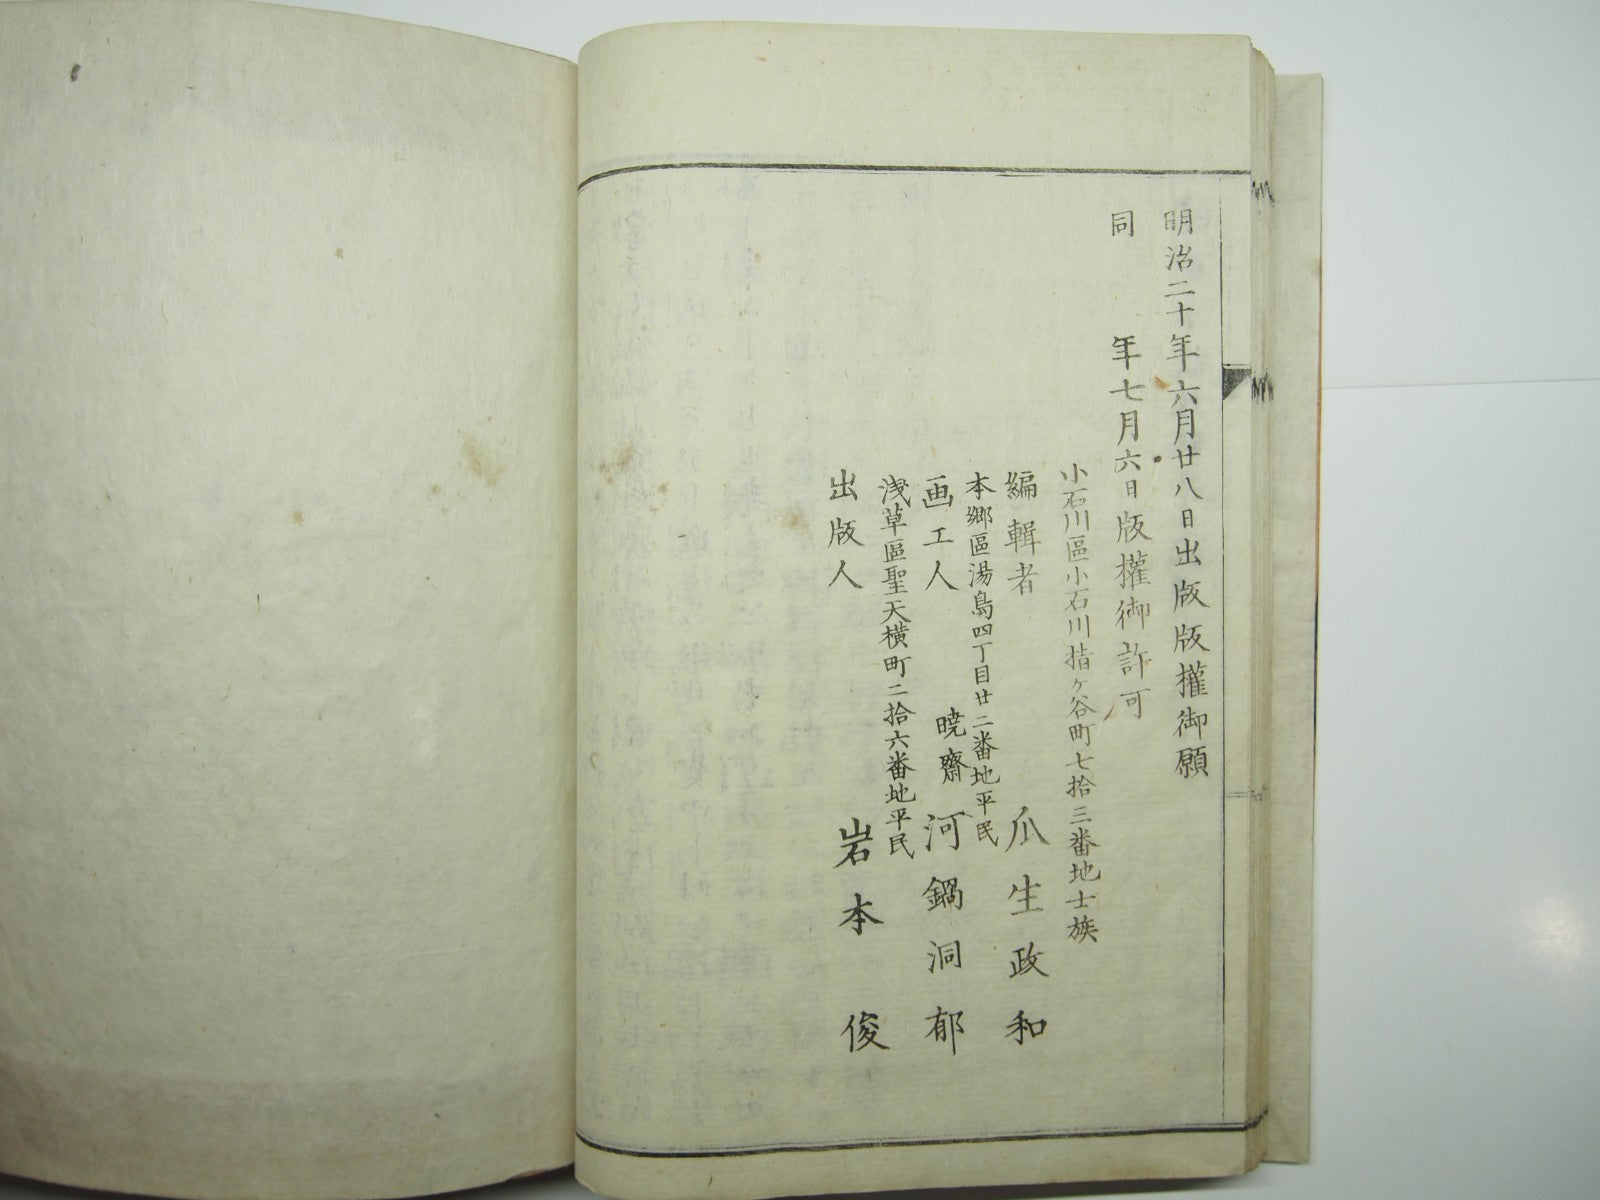 明治二十年六月廿八日出版版權御願
同　年七月六日版權御許可
小石川區小石川指ヶ谷町七拾三番地士族
編輯者　瓜生政和
本郷區湯島四丁目廿二番地平民
画工人　暁齋　河鍋洞郁
浅草區聖天横町二拾六番地平民
出版人　岩本俊